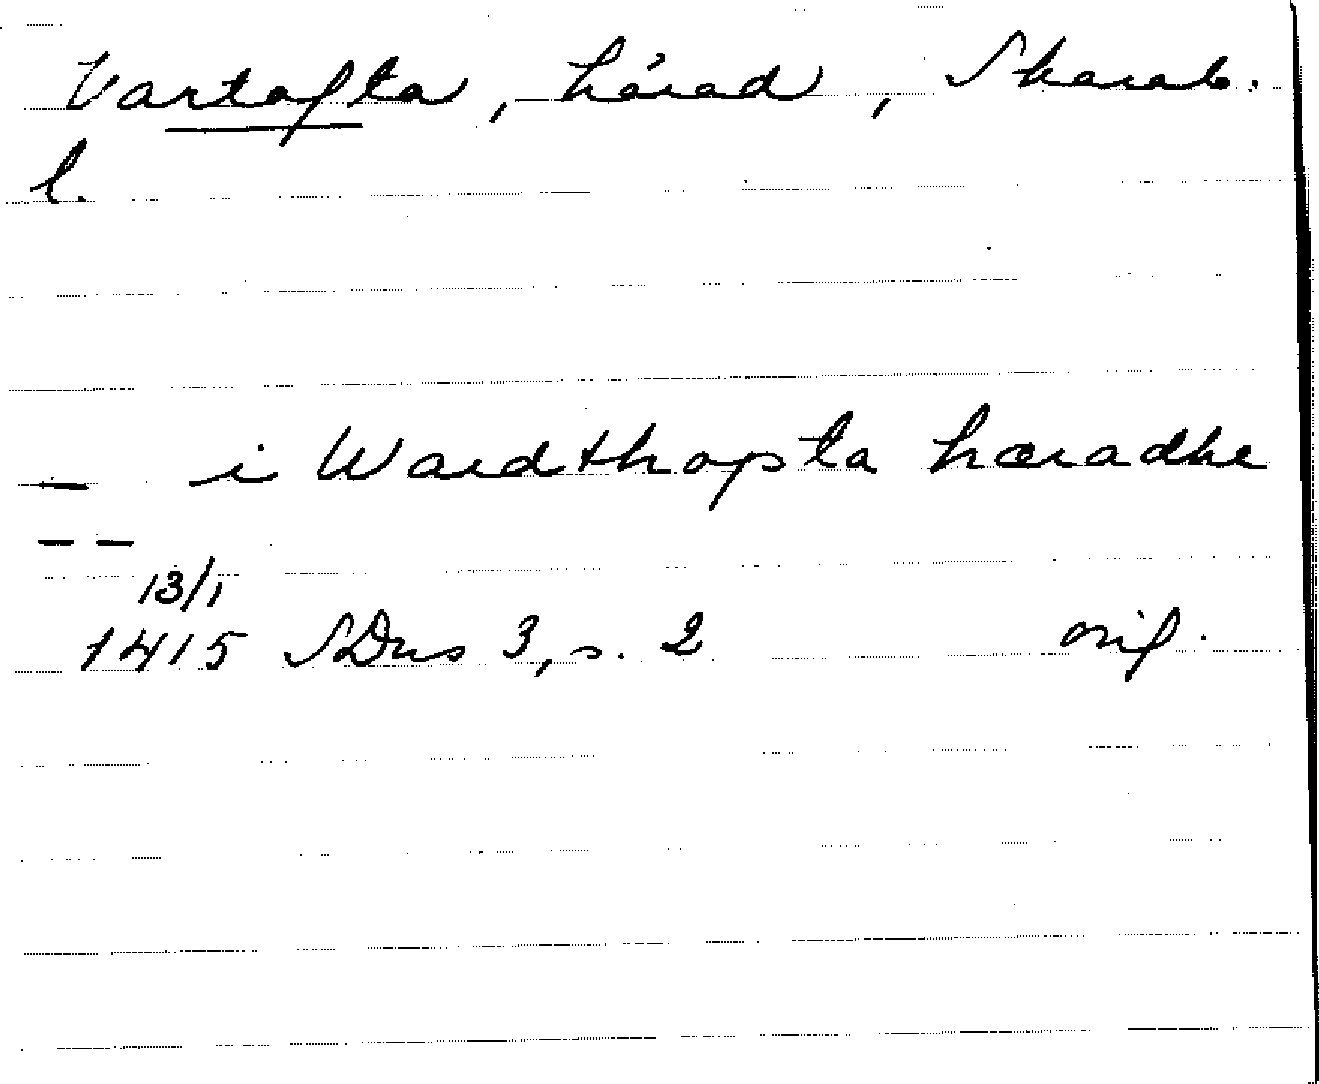 Vartofta, härad, Skarab.
l.
— i Wardthopta hæradhe
— —
13/1
1415 SDns 3, s. 2 orig.